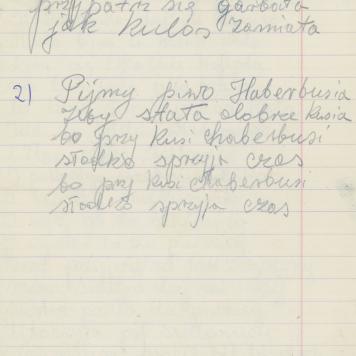 przypatrz się garbata
jak kulas zamiata
2) Pijmy piwo Haberbusia
żeby stała dobrze kusia
bo przy kusi chaberbusi
słodko spryja czas
bo prz kusi chaberbusi
słodko spryja czas